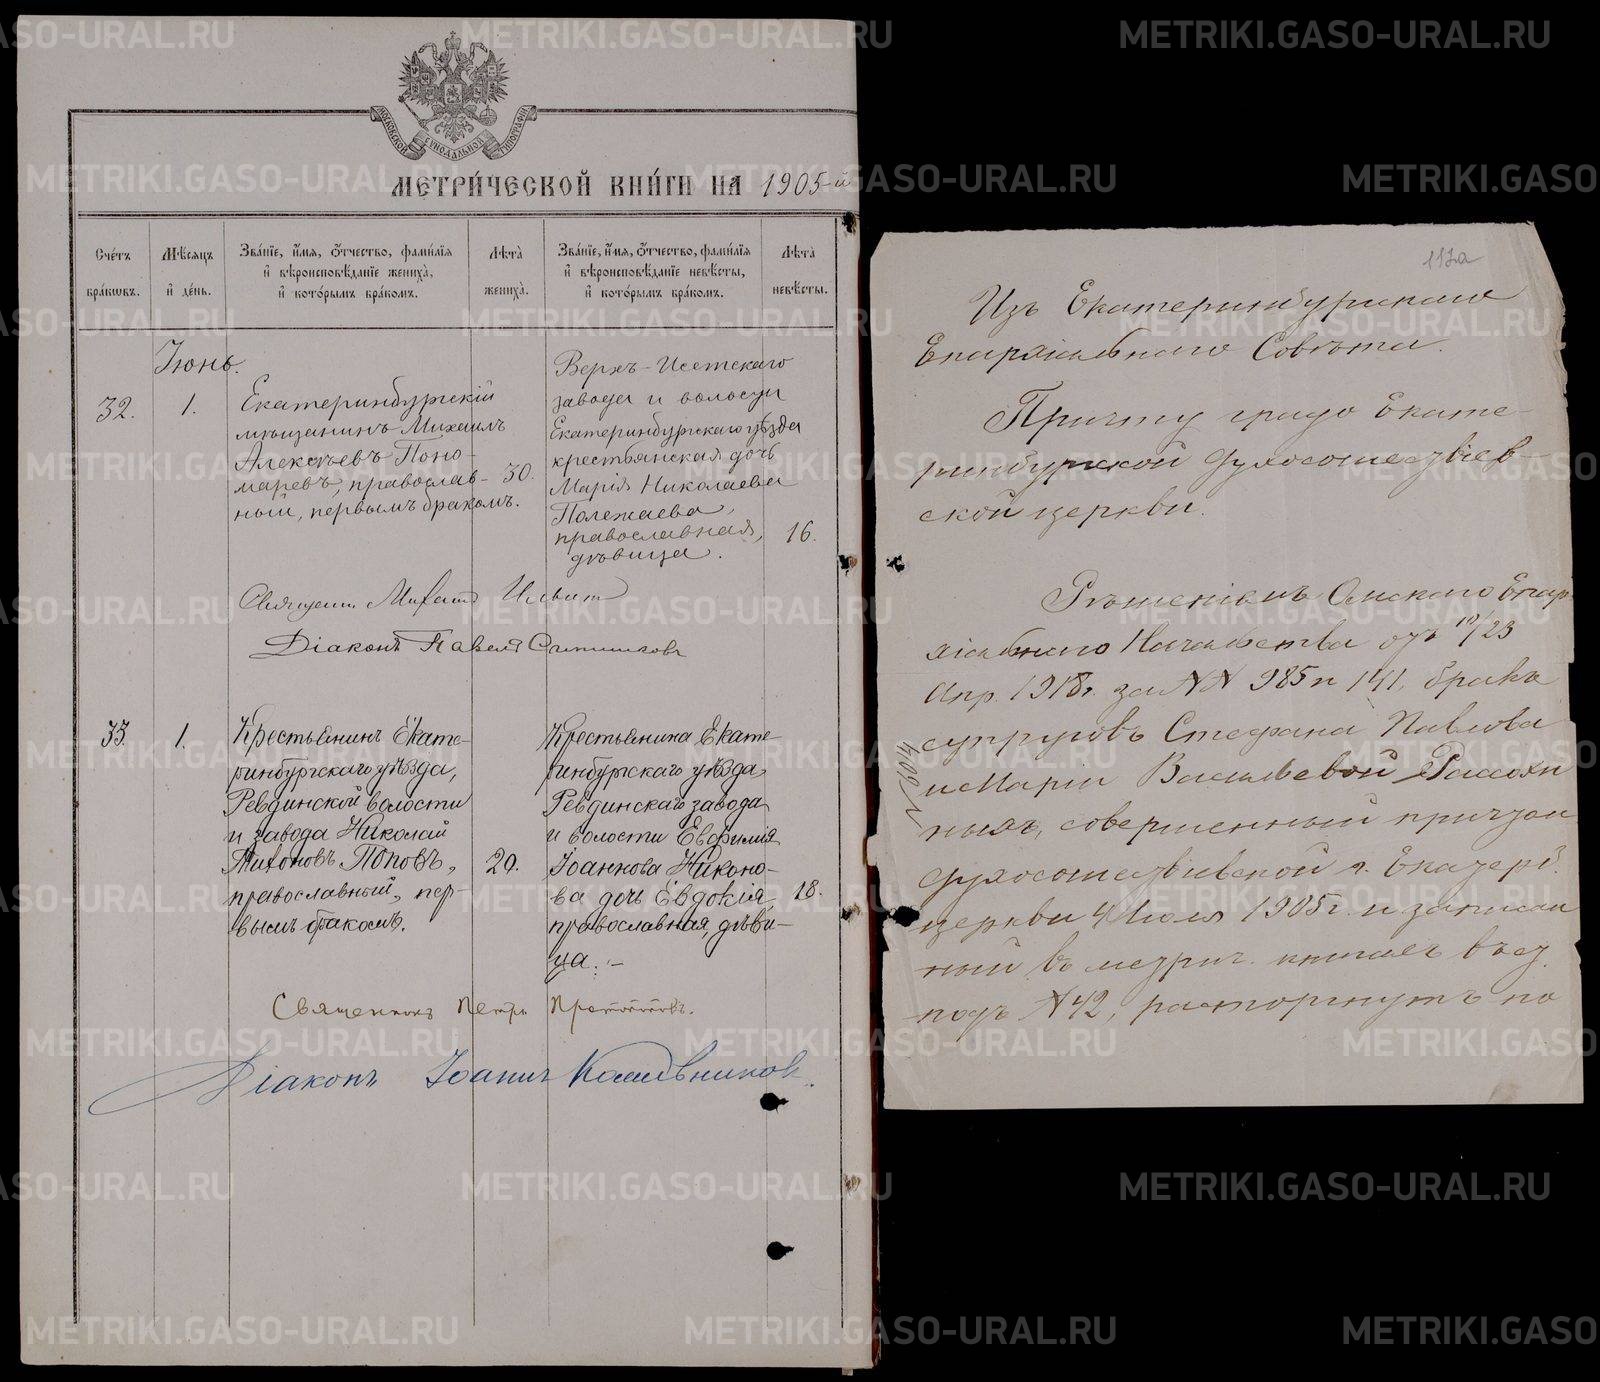 МОСКОВСКОЙ СѴНОДАЛЬНОЙ ТИПОГРАФІИ
МЕТРИ́ЧЕСКОЙ КНИ́ГИ НА 1905-й
Сче́тъ
бра́кѡвъ.
Мѣ́сяцъ
и҆ де́нь.
Зва́нїе, и҆́мѧ, ѻ҆́тчество, фами́лїѧ
и҆ вѣроисповѣ́данїе жениха̀,
и҆ кото́рымъ бра́комъ.
Лѣ́та
жениха̀.
Зва́нїе, и҆́мѧ, ѻ҆́тчество, фами́лїѧ
и҆ вѣроисповѣ́данїе невѣ́сты,
и҆ кото́рымъ бра́комъ.
Лѣ́та
невѣ́сты.
Іюнь.
32.
1.
Екатеринбургскій
мѣщанинъ Михаилъ
Алексѣевъ Поно-
маревъ, православ-
ный, первымъ бракомъ.
30.
Верхъ-Исетскаго
завода и волости
Екатеринбургскаго уѣзда
крестьянская дочь
Марія Николаева
Полежаева,
православная,
дѣвица.
16.
Священн. Михаил
Діаконъ Павелъ
33.
1.
Крестьянинъ Екате-
ринбургскаго уѣзда,
Ревдинской волости
и завода Николай
Тихоновъ Поповъ,
православный, пер-
вымъ бракомъ.
20.
Крестьянина Екате-
ринбургскаго уѣзда
Ревдинскаго завода
и волости Евфимія
Іоаннова Никоно-
ва дочь Евдокія,
православная, дѣви-
ца.
18.
Священникъ Петръ
Діаконъ Іоаннъ
117а
Изъ Екатеринбургскаго
Епархіальнаго Совѣта.
Причту градо Екате-
ринбургской Духосошествіев-
ской церкви.
Рѣшеніемъ Омскаго Епар-
хіальнаго Начальства отъ 10/23
Апр. 1918 г. за NN 985 и 141, бракъ
супруговъ Стефана Павлова
и Маріи Васильевой Рассохи
ныхъ, совершенный причтом
Духосошествіевской г. Екатерб.
церкви 4 Іюля 1905 г. и записан
ный въ метрич. книгахъ
подъ N 42, расторгнутъ по
METRIKI.GASO-URAL.RU